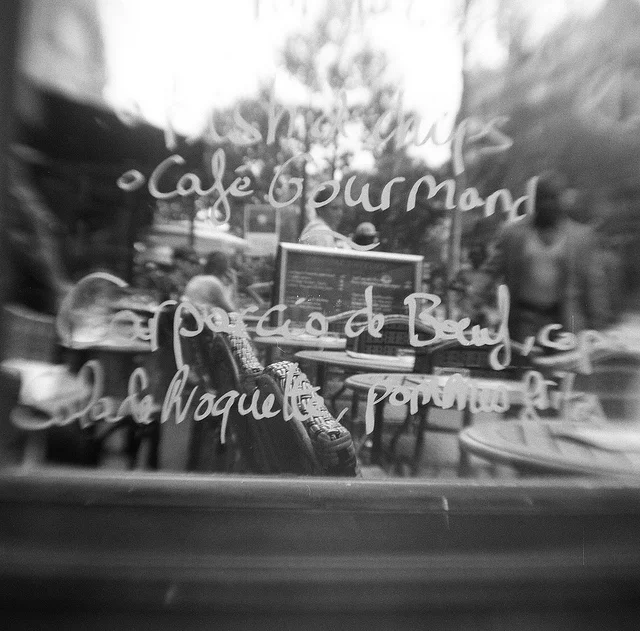 Fish & chips
o Café Gourmand
Carpaccio de Boeuf, cap
Salade Roquette, pommes frites